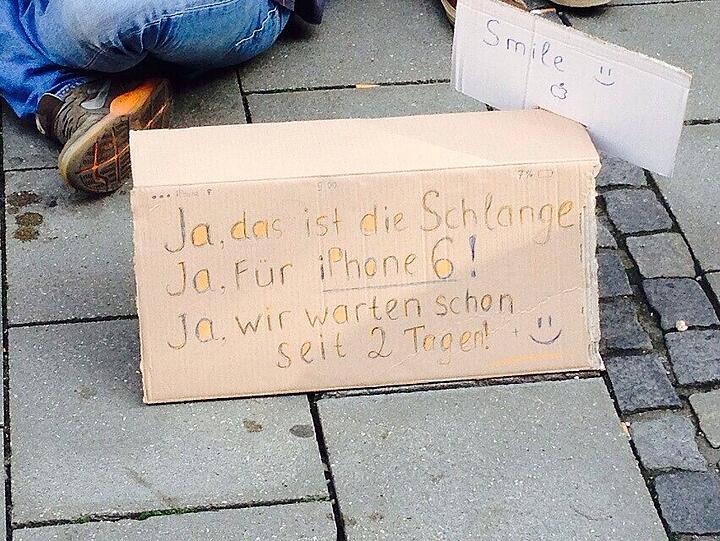 Smile
iPhone 9:00 7%
Ja, das ist die Schlange,
Ja, Für iPhone 6!
Ja, wir warten schon
seit 2 Tagen!